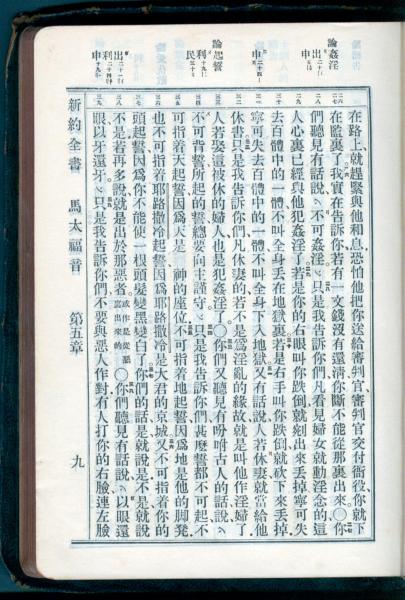 論姦淫
論起誓
在路上、就趕緊與他和息、恐怕他把你送給審判官、審判官交付衙役、你就下
在監裏了、我實在告訴你、若有一文錢沒有還清、你斷不能從那裏出來。○你
們聽見有話說、不可姦淫。只是我告訴你們、凡看見婦女就動淫念的、這
人心裏已經與他犯姦淫了。若是你的右眼叫你跌倒、就剜出來丟掉、寧可失
去百體中的一體、不叫全身丟在地獄裏。若是右手叫你跌倒、就砍下來丟掉、
寧可失去百體中的一體、不叫全身下入地獄。又有話說、人若休妻、就當給他
休書。只是我告訴你們、凡休妻的、若不是爲淫亂的緣故、就是叫他作淫婦了、
人若娶這被休的婦人、也是犯姦淫了。○你們又聽見有吩咐古人的話、說、
不可背誓、所起的誓、總要向主謹守。只是我告訴你們、甚麼誓都不可起、不
可指着天起誓、因爲天是　神的座位、不可指着地起誓、因爲地是他的脚凳、
也不可指着耶路撒冷起誓、因爲耶路撒冷是大君的京城、又不可指着你的
頭起誓、因爲你不能使一根頭髮變黑變白了。你們的話、是、就說是、不是、就說
不是、若再多說、就是出於那惡者。或作是從惡裏出來的○你們聽見有話說、以眼還
眼、以牙還牙。只是我告訴你們、不要與惡人作對、有人打你的右臉、連左臉
新約全書　馬太福音　第五章　九